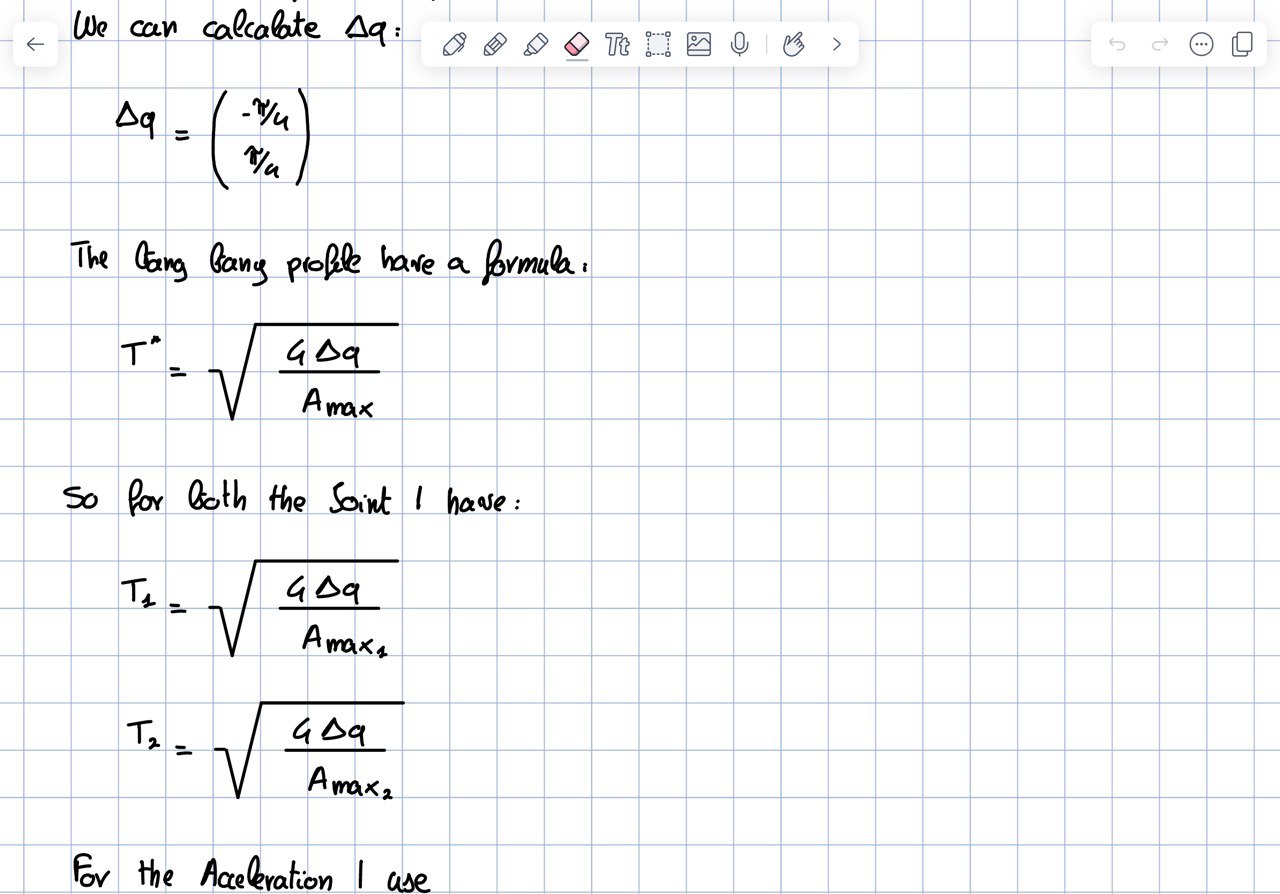 We can calcalate Δq:
Δq = ( -π/4
π/4 )
The bang bang profile have a formula:
T* = √(4 Δq / Amax)
So for both the Joint I have:
T1 = √(4 Δq / Amax1)
T2 = √(4 Δq / Amax2)
For the Acceleration I use